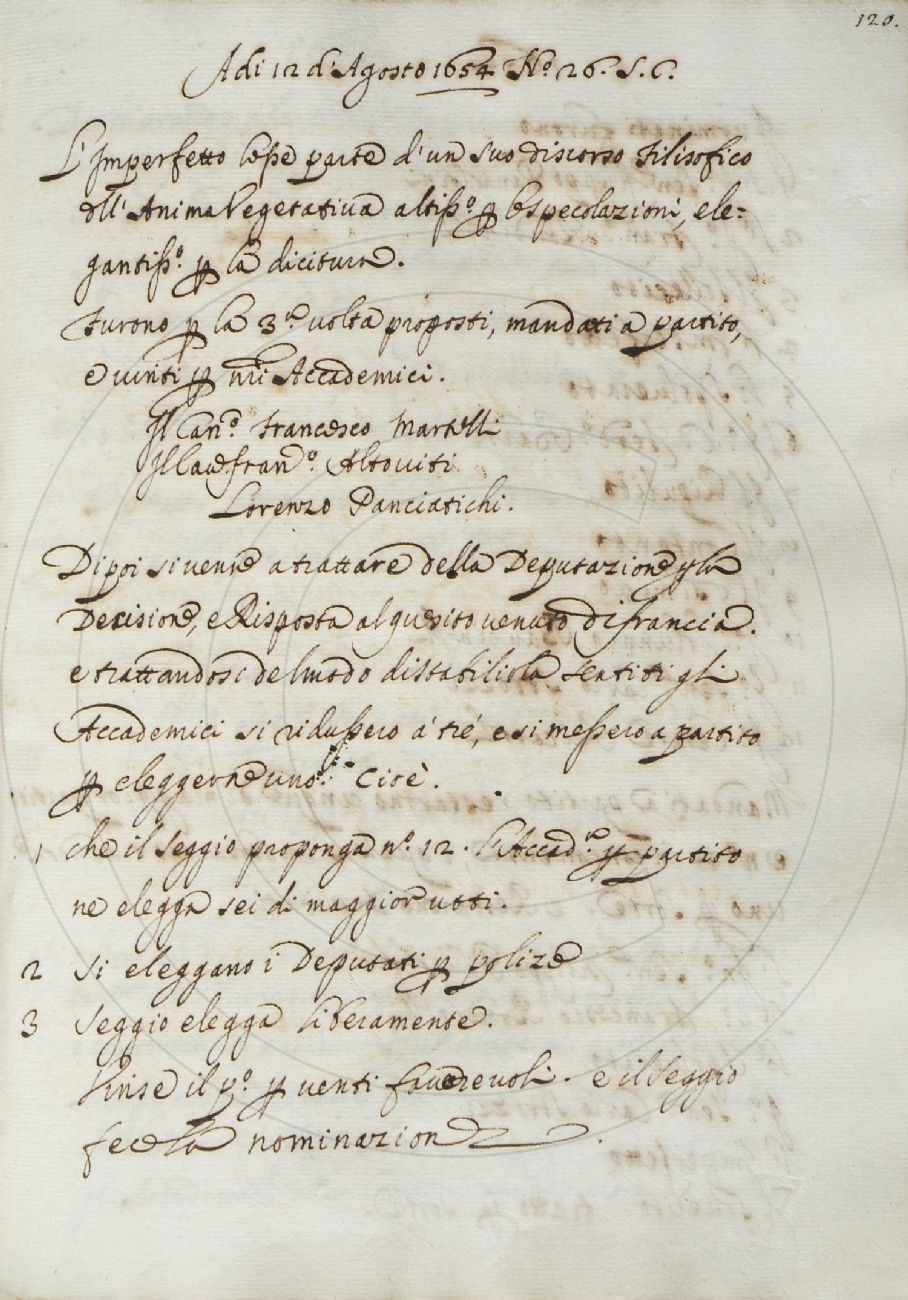 120.
Adi 12 d'Agosto 1654 No. 26. S. C.
L'Imperfetto lesse parte d'un suo discorso Filisofico
dll'Anima Vegetativa altiss.o p le specolazioni, ele=
gantiss.o p la dicitura.
Furono p la 3.a volta proposti, mandati a partito,
e vinti p nri Accademici.
Il Can.o Francesco Martelli
Il Cav Fran.o Altoviti
Lorenzo Panciatichi.
Dipoi si venne a trattare della Deputazione p la
Decisione, e Risposta al quesito venuto di francia.
e trattandosi del modo di stabilirla sentiti gli
Accademici si ridussero a' tre', e si messero a partito
p eleggerne uno. Cioè.
1 che il Seggio proponga n.o 12. l'Accad.a p partito
ne elegga sei di maggior voti.
2 Si eleggano i Deputati p polize
3 Seggio elegga liberamente.
Vinse il p.o p venti favorevoli. e il Seggio
fece la nominazione.